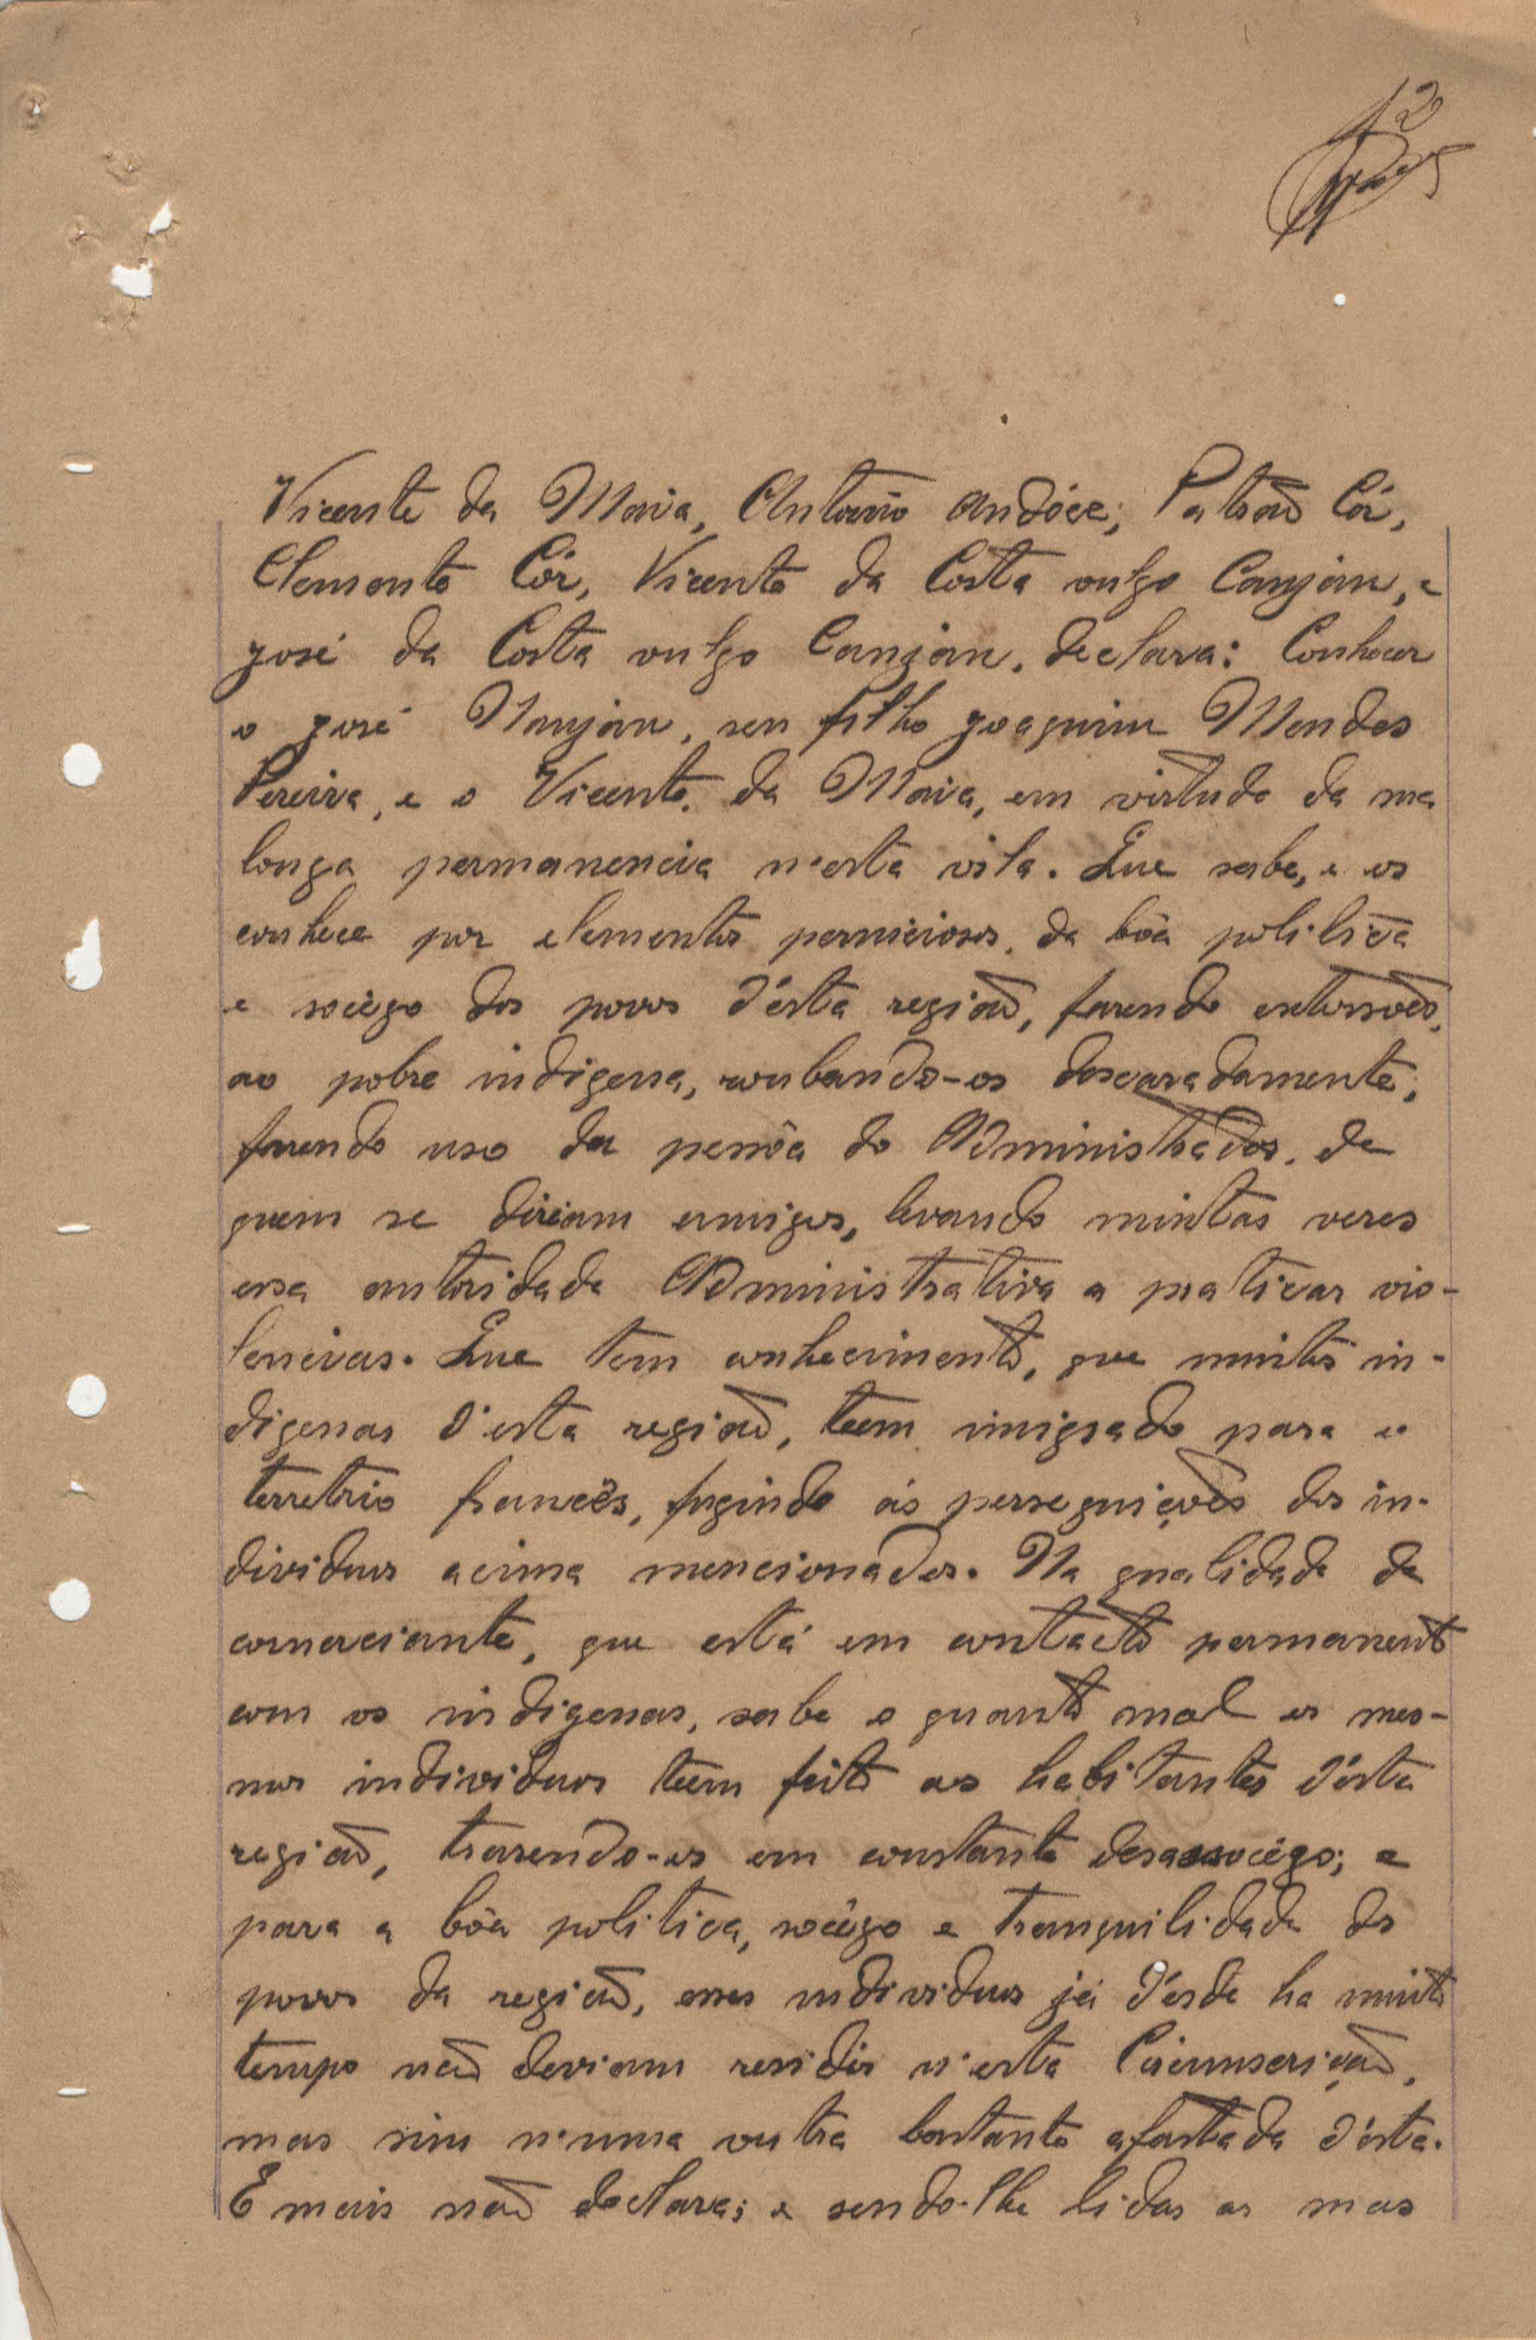 12
Vicente da Maia, Antonio Andóce; Patrão Cór,
Clemente Côr, Vicente da Costa vulgo Canjan, e
José da Costa vulgo Canjan. declara: Conhecer
o José Nanjan, seu filho Joaquim Mendes
Pereira, e o Vicente da Maia, em virtude da sua
longa permanencia n'esta vila. Que sabe, e os
conhece por elementos perniciosos, da bôa politica
e socêgo dos povos d'esta região, fazendo extorsões,
ao pobre indigena, roubando-os descaradamente;
fazendo uso da pessôa do Administrador, de
quem se diziam amigos, levando muitas vezes
essa autoridade Administrativa a praticar vio-
lencias. Que tem conhecimento, que muitos in-
digenas d'esta região, teem imigrado para o
territrio francês, fugindo ás perseguições dos in-
dividuos acima mencionados. Na qualidade de
comerciante, que está em contacto permanente
com os indigenas, sabe o quanto mal os mes-
mos individuos teem feito aos habitantes d'esta
região, trazendo-os em constante desassocêgo; e
para a bôa politica, socêgo e tranquilidade dos
povos da região, esses individuos já d'esde ha muito
tempo não deviam residir n'esta Circunscrição,
mas sim n'uma outra bastante afastada d'esta.
E mais não declara; e sendo-lhe lidas as suas